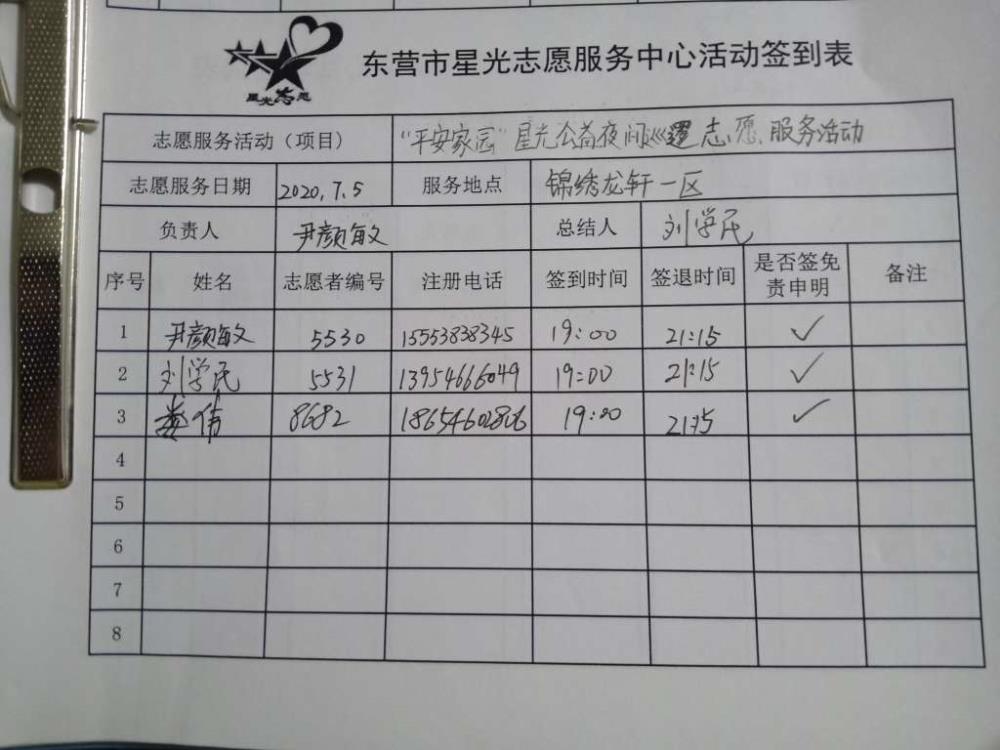 星光志愿
东营市星光志愿服务中心活动签到表
志愿服务活动（项目） “平安家园”星光公益夜间巡逻志愿服务活动
志愿服务日期 2020.7.5 服务地点 锦绣龙轩一区
负责人 尹颜敏 总结人 刘学民
序号 姓名 志愿者编号 注册电话 签到时间 签退时间 是否签免责申明 备注
1 尹颜敏 5530 15553838345 19:00 21:15 ✓
2 刘学民 5531 13954666049 19:00 21:15 ✓
3 娄伟 8682 18654602806 19:00 21:15 ✓
4
5
6
7
8